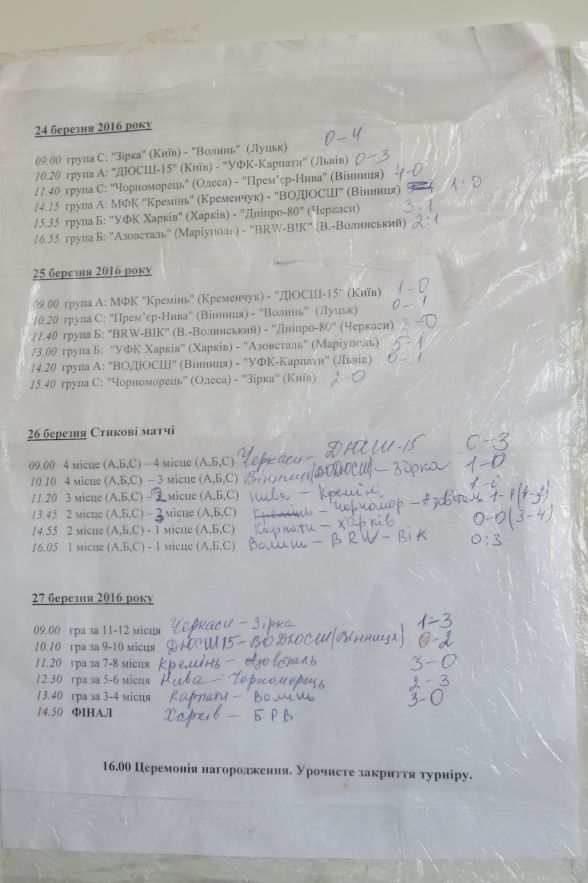 24 березня 2016 року
09.00 група С: "Зірка" (Київ) - "Волинь" (Луцьк) 0-4
10.20 група А: "ДЮСШ-15" (Київ) - "УФК-Карпати" (Львів) 0-3
11.40 група С: "Чорноморець" (Одеса) - "Прем'єр-Нива" (Вінниця) 4-0
14.15 група А: МФК "Кремінь" (Кременчук) - "ВОДЮСШ" (Вінниця) 1:0
15.35 група Б: "УФК Харків" (Харків) - "Дніпро-80" (Черкаси) 3:1
16.55 група Б: "Азовсталь" (Маріуполь) - "BRW-ВІК" (В.-Волинський) 2:1
25 березня 2016 року
09.00 група А: МФК "Кремінь" (Кременчук) - "ДЮСШ-15" (Київ) 1-0
10.20 група С: "Прем'єр-Нива" (Вінниця) - "Волинь" (Луцьк) 0-1
11.40 група Б: "BRW-ВІК" (В.-Волинський) - "Дніпро-80" (Черкаси)
13.00 група Б: "УФК Харків" (Харків) - "Азовсталь" (Маріуполь) 5-1
14.20 група А: "ВОДЮСШ" (Вінниця) - "УФК-Карпати" (Львів) 0-1
15.40 група С: "Чорноморець" (Одеса) - "Зірка" (Київ) 2-0
26 березня Стикові матчі
09.00 4 місце (А,Б,С) – 4 місце (А,Б,С) Черкаси - ДЮСШ-15 0-3
10.10 4 місце (А,Б,С) – 3 місце (А,Б,С) Вінниця (ВОДЮСШ) - Зірка 1-0
11.20 3 місце (А,Б,С) – 2 місце (А,Б,С) Нива - Кремінь
13.45 2 місце (А,Б,С) – 3 місце (А,Б,С) Чорномор - Азовсталь 1-1 (4-3)
14.55 2 місце (А,Б,С) - 1 місце (А,Б,С) Карпати - Харків 0-0 (3-4)
16.05 1 місце (А,Б,С) - 1 місце (А,Б,С) Волинь - BRW-ВІК 0:3
27 березня 2016 року
09.00 гра за 11-12 місця Черкаси - Зірка 1-3
10.10 гра за 9-10 місця ДЮСШ15 - ВОДЮСШ (Вінниця) 0-2
11.20 гра за 7-8 місця Кремінь - Азовсталь 3-0
12.30 гра за 5-6 місця Нива - Чорноморець 2-3
13.40 гра за 3-4 місця Карпати - Волинь 3-0
14.50 ФІНАЛ Харків - БРВ
16.00 Церемонія нагородження. Урочисте закриття турніру.